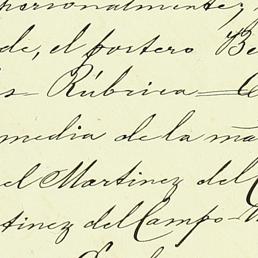 personalmente,
de, el portero Be
s= Rúbrica=
media de la ma
el Martinez del C
tinez del Campo=